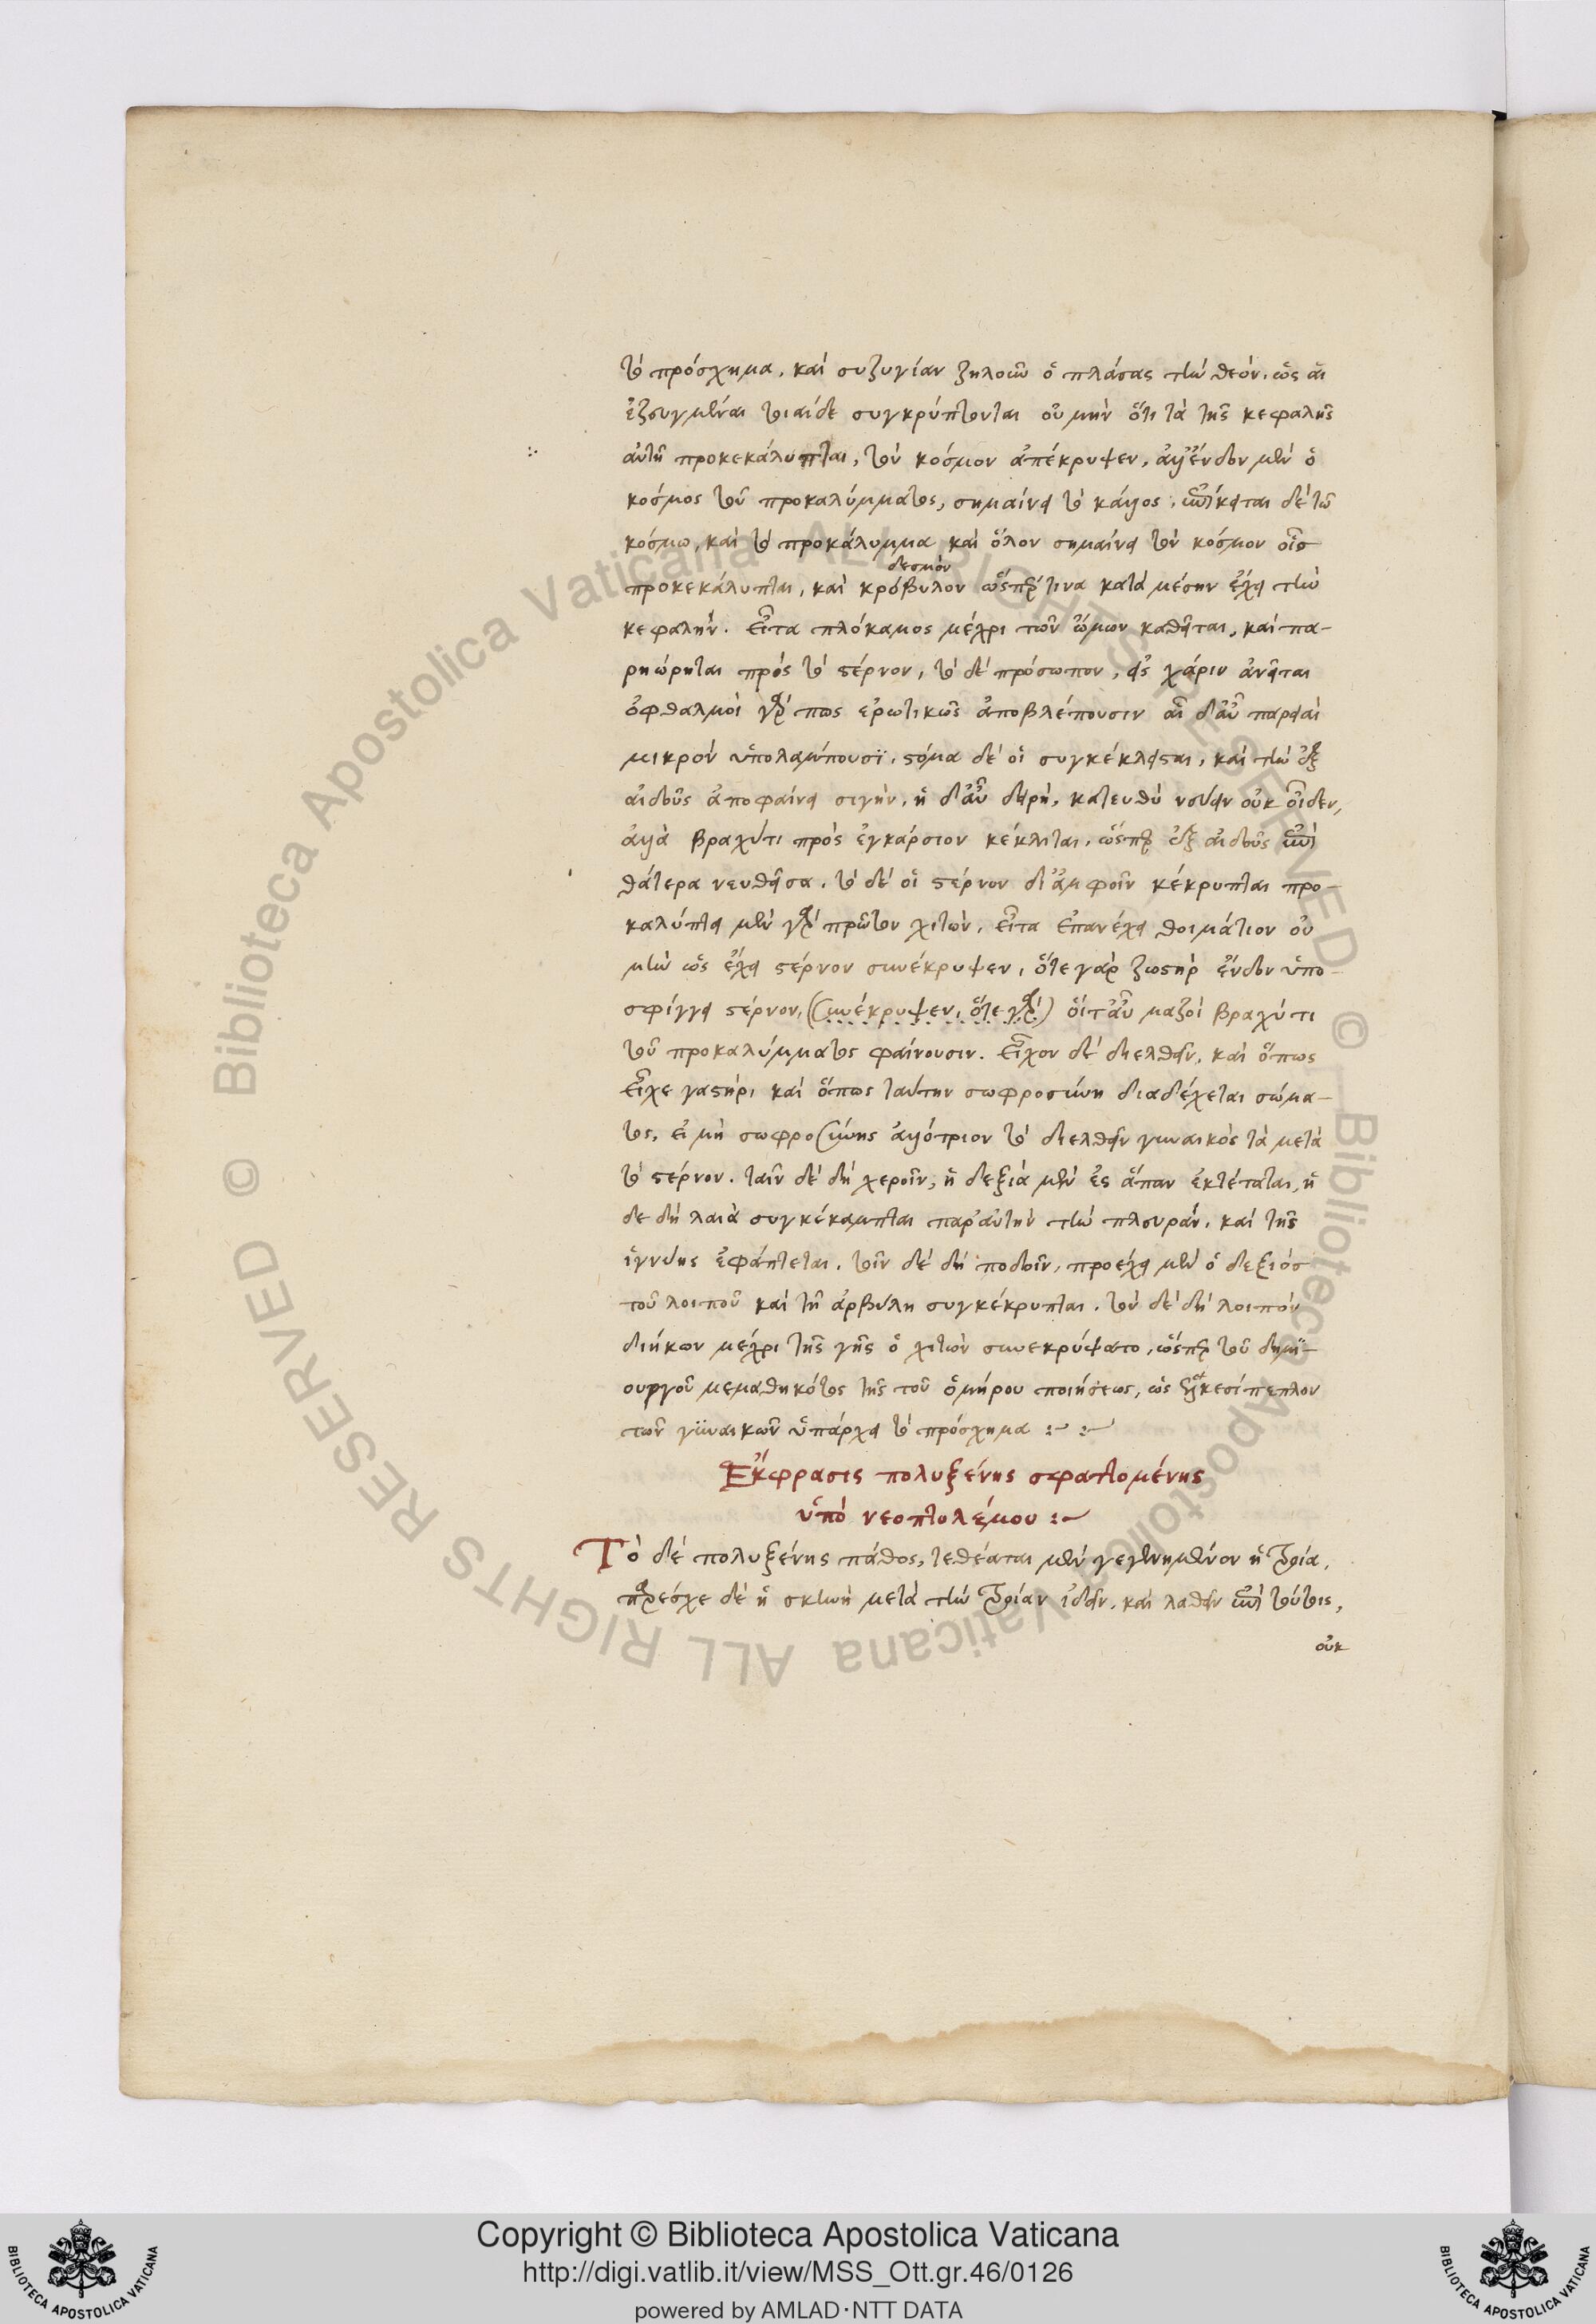 τὸ πρόσχημα, καὶ συζυγίαν ζηλοῦν ὁ πλάσας τὴν θεόν, ὡς αἱ
ἐζευγμέναι τοιαίδε συγκρύπτονται οὐ μὴν ὅτι τὰ τῆς κεφαλῆς
αὐτῇ προκεκάλυπται, τὸν κόσμον ἀπέκρυψεν, ἀλλ' ἔνδον μὲν ὁ
κόσμος τοῦ προκαλύμματος, σημαίνει τὸ κάλλος, ἐπίκειται δὲ τῶ
κόσμω, καὶ τὸ προκάλυμμα καὶ ὅλον σημαίνει τὸν κόσμον οἷς
δεσμὸν
προκεκάλυπται, καὶ κρόβυλον ὥσπερ τινα κατὰ μέσην ἔχει τὴν
κεφαλὴν. εἶτα πλόκαμος μέχρι τῶν ὤμων καθεῖται, καὶ πα-
ρηώρηται πρὸς τὸ στέρνον, τὸ δὲ πρόσωπον, εἰς χάριν ἀνεῖται
ὀφθαλμοὶ γὰρ πως ἐρωτικῶς ἀποβλέπουσιν αἱ δ' αὖ παρειαὶ
μικρὸν ὑπολάμπουσι, στόμα δέ οἱ συγκέκλεισται, καὶ τὴν ἐξ
αἰδοῦς ἀποφαίνει σιγὴν, ἡ δ' αὖ δειρὴ, κατευθὺ νεύειν οὐκ οἶδεν,
ἀλλὰ βραχύτι πρὸς ἐγκάρσιον κέκλιται, ὥσπερ ἐξ αἰδοῦς ἐπὶ
θάτερα νευθεῖσα. τὸ δέ οἱ στέρνον δι' ἀμφοῖν κέκρυπται προ-
καλύπτει μὲν γὰρ πρῶτον χιτὼν, εἶτα ἐπανέχει θοιμάτιον οὐ
μὴν ὡς ἔχει στέρνον συνέκρυψεν, ὅτε γὰρ ζωστὴρ ἔνδον ὑπο-
σφίγγει στέρνον, (συνέκρυψεν, ὅτε γὰρ) οἵτ' αὖ μαζοὶ βραχύτι
τοῦ προκαλύμματος φαίνουσιν. εἶχον δὲ διελθεῖν, καὶ ὅπως
εἶχε γαστήρ, καὶ ὅπως ταύτην σωφροσύνη διαδέχεται σώμα-
τος, εἰ μὴ σωφροσύνης ἀλλότριον τὸ διελθεῖν γυναικὸς τὰ μετὰ
τὸ στέρνον. ταῖν δὲ δὴ χεροῖν, ἡ δεξιὰ μὲν ἐς ἅπαν ἐκτέταται, ἡ
δε δὴ λαιὰ συγκέκαμπται παρ' αὐτὴν τὴν πλευρὰν, καὶ τῆς
ἰγνύης ἐφάπτεται. τοῖν δὲ δὴ ποδοῖν, προέχει μὲν ὁ δεξιὸς
τοῦ λοιποῦ καὶ τῇ ἀρβύλη συγκέκρυπται. τὸν δὲ δὴ λοιπὸν
διήκων μέχρι τῆς γῆς ὁ χιτὼν συνεκρύψατο, ὥσπερ τοῦ δημι-
ουργοῦ μεμαθηκότος τῆς τοῦ ὁμήρου ποιήσεως, ὡς ἑλκεσίπεπλον
τῶν γυναικῶν ὑπάρχει τὸ πρόσχημα :~ :~
Ἔκφρασις πολυξένης σφαττομένης
ὑπὸ νεοπτολέμου :~
Τὸ δὲ πολυξένης πάθος, τεθέαται μὲν γεγενημένον ἡ Τροία,
παρέσχε δὲ ἡ σκηνὴ μετὰ τὴν Τροίαν ἰδεῖν, καὶ λαθεῖν ἐπὶ τούτοις,
οὐκ
Copyright © Biblioteca Apostolica Vaticana
http://digi.vatlib.it/view/MSS_Ott.gr.46/0126
powered by AMLAD·NTT DATA
BIBLIOTECA APOSTOLICA VATICANA
BIBLIOTECA APOSTOLICA VATICANA
© Biblioteca Apostolica Vaticana ALL RIGHTS RESERVED
© Biblioteca Apostolica Vaticana ALL RIGHTS RESERVED